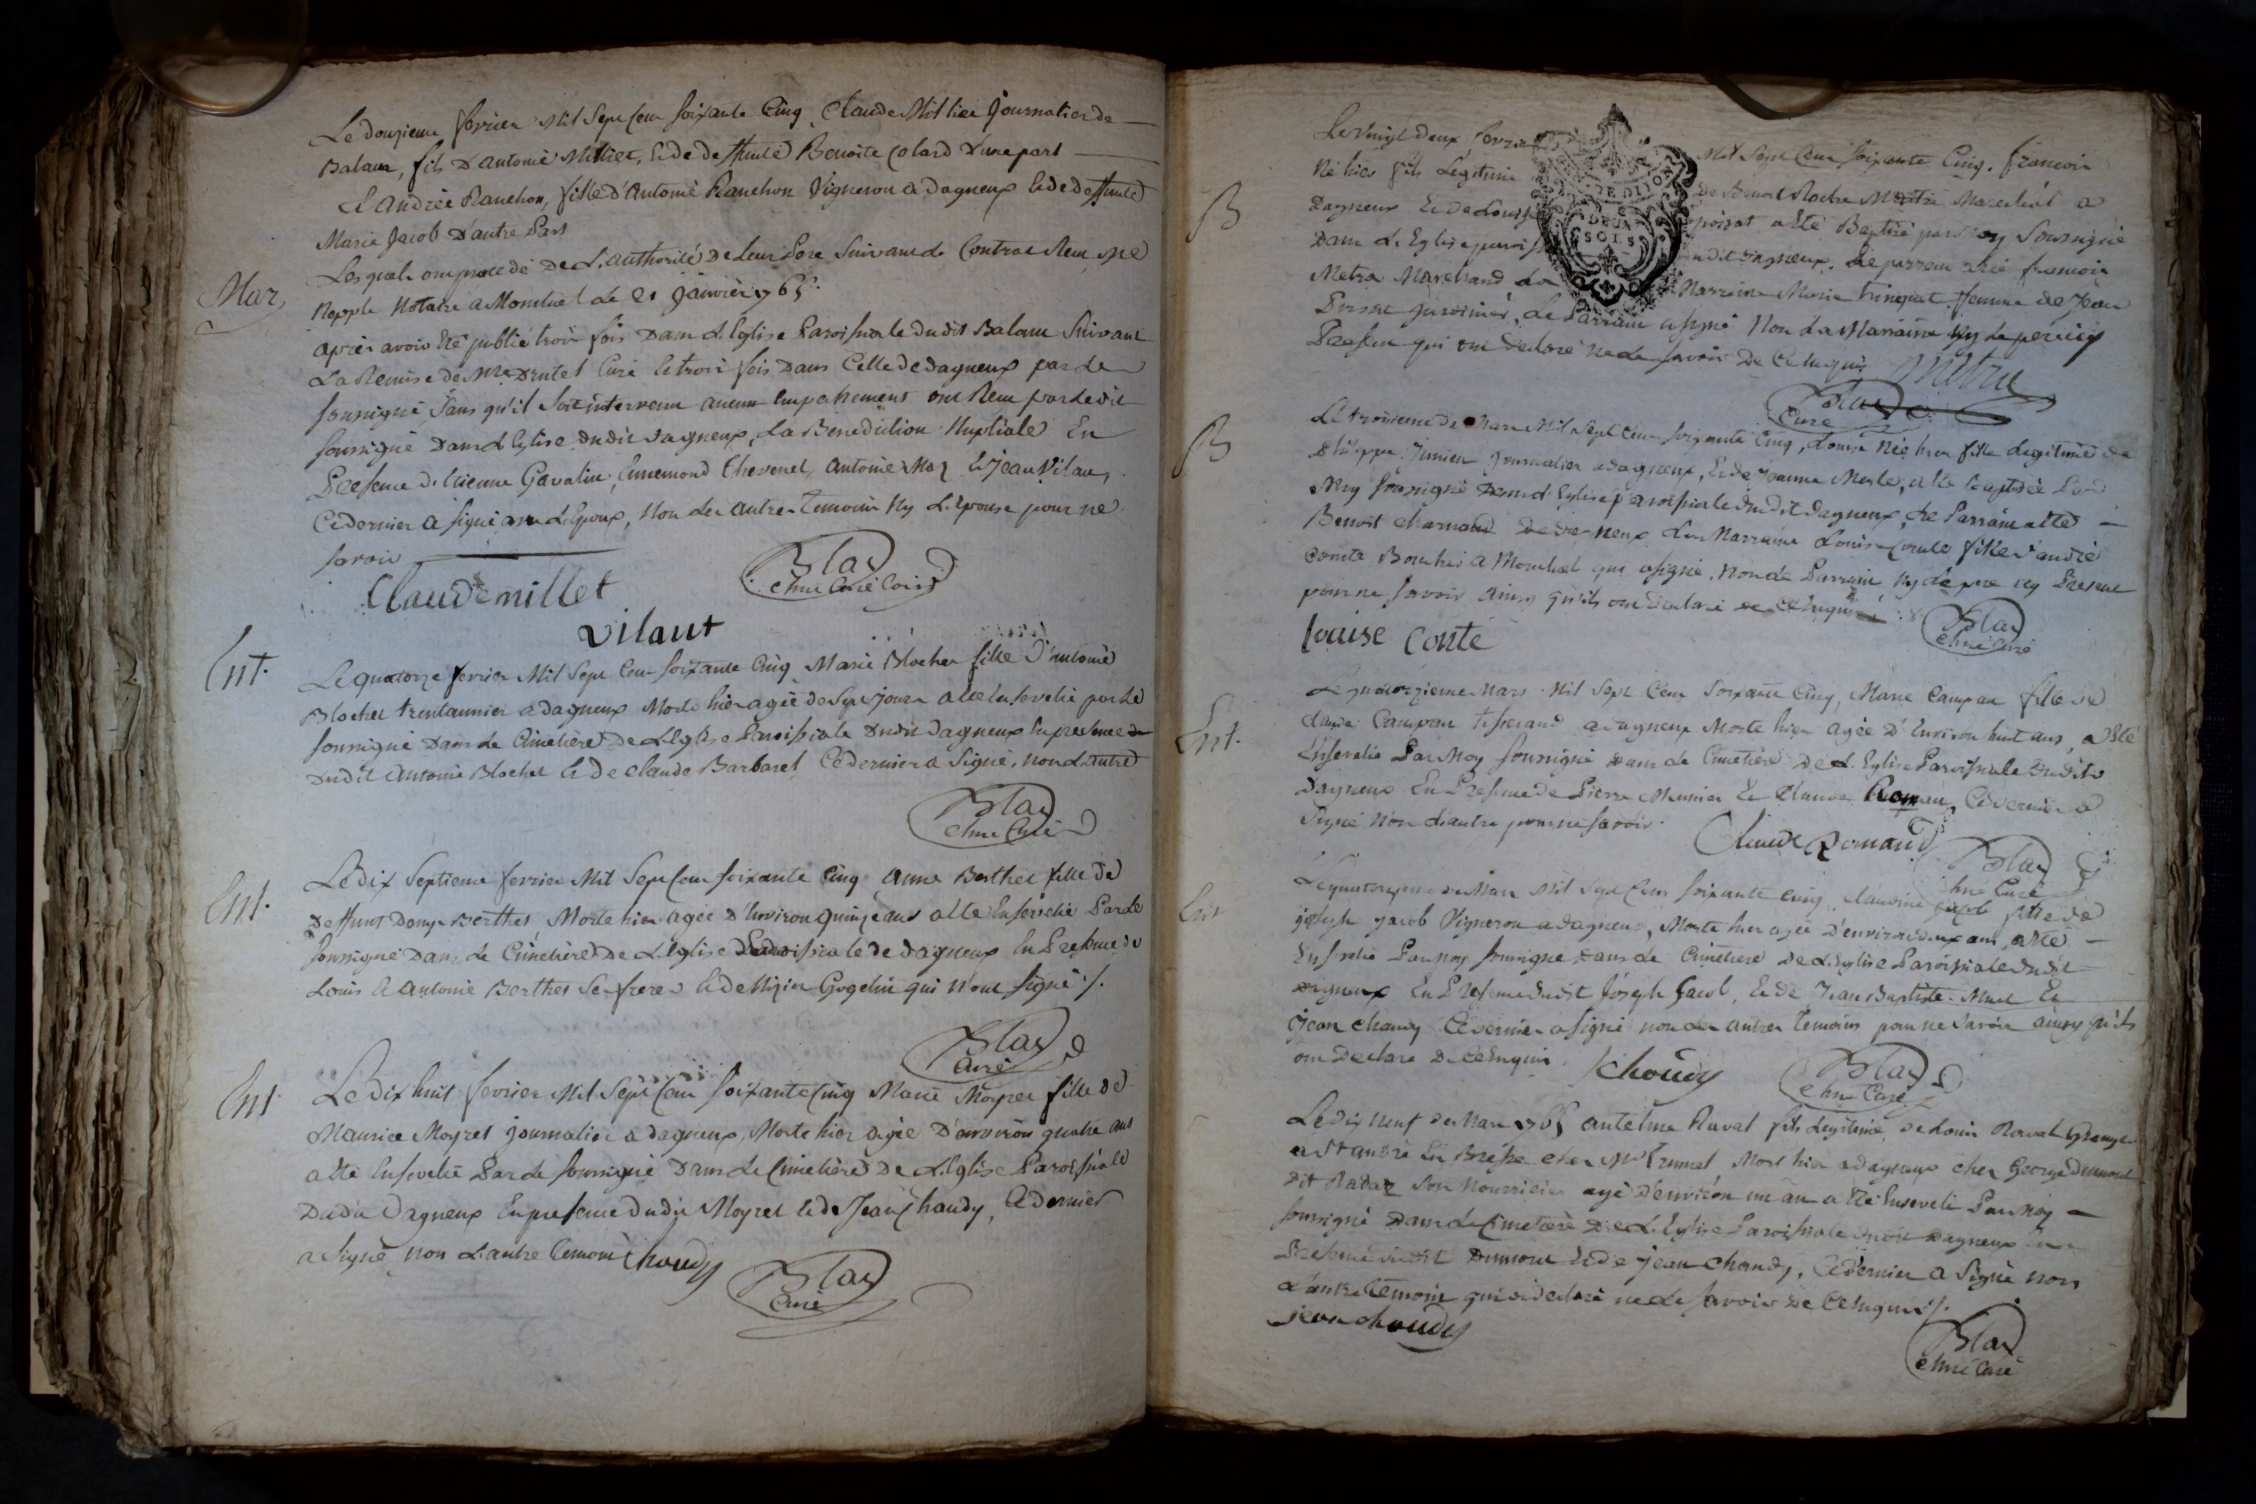 Mar,
Le douzieme fevrier Mil Sept Cent soixante Cinq, Claude Millier Journalier de
Balaen, fils D'antoine Millier, & de deffunte Benoite Colard D'une part
& andrée Ranchon, fille d'Antoine Ranchon Vigneron a Dagneux & de deffunte
Marie Jacob D'autre Part
Lesquels ont procedé De L'authorité De Leur Pere Suivant Le Contrat Reçu Me
Notaire a Montluel Le 21 janvier 1765.
après avoir été publié trois fois Dans L'Eglise Paroissiale dudit Balan Suivant
La Remise de Mre Curé & trois fois Dans Celle de Dagneux par le
soussigné, Sans qu'il Soit intervenu aucun Empechement ont Reçu par ledit
soussigné Dans L'Eglise dudit Dagneux, La Benediction Nuptiale En
Presence d'Etienne Gavalin, Ennemond Chevenel, antoine & Jean Vilaut,
Ce dernier a signé avec L'Epoux, Non Les autres Temoins Ny L'Epouse pour ne
savoir
Claude millet
Blay
Curé
vilaut
Ent.
Le quatorze fevrier Mil Sept Cent soixante Cinq Marie Blochet fille D'antoine
Blochet a dagneux Morte hier agée de Sept jours a été Ensevelie par Le
soussigné Dans Le Cimetière De L'Eglise Paroissiale Dudit Dagneux En presence
Dudit Antoine Blochet & de Claude Barbaret, Ce dernier a Signé, non L'autre
Blay
Curé
Ent.
Le dix Septieme fevrier Mil Sept Cent soixante Cinq Anne Berthet fille De
Deffunt Berthet Morte hier agée D'Environ quinze ans a été Ensevelie Par Le
soussigné Dans Le Cimetière De L'Eglise Paroissiale de Dagneux En Presence de
Louis & antoine Berthet Ses freres & de Gogelin qui n'ont Signé ./.
Blay
Curé
Ent
Le dix huit fevrier Mil Sept Cent Soixante Cinq Marie Moyret fille de
Maurice Moyret journalier a dagneux, Morte hier agée D'environ quatre ans
a été Ensevelie Par Le soussigné Dans Le Cimetière De L'Eglise Paroissiale
Dudit Dagneux En presence Dudit Moyret & de Jean Chaudy, Ce dernier
a Signé non L'autre Temoin Choudy
Blay
Curé
B
Le Vingt Deux fevrier Mil Sept Cent soixante Cinq. francois
Né hier fils Legitime de Benoit Marechal a
Dagneux & De Louise a été Baptisé par moy Soussigné
Dans L'Eglise paroissiale dudit dagneux. Le parrein a été francois
Metra Marchand La Marraine Marie femme de Jean
jardinier, Le Parrain a signé Non La Marraine Ny Le pere icy
Present qui ont declaré ne le savoir De Ce Enquis
Metra
Blay
Curé
DE DIJON
DEUX
SOLS
B
Le troisieme de Mars Mil Sept Cent soixante Cinq, Louise Née hier fille Legitime de
Philippe journalier a dagneux, & de Jeanne a été baptisée Par
Moy soussigné Dans L'Eglise Paroissiale Dudit dagneux, Le Parrain a été
Benoit Charnaud La Marraine Louise Conte fille d'andré
Conte Boucher a Montluel qui a signé, Non Le Parrain Ny Le pere icy Present
pour ne savoir ainsy qu'ils ont declaré de ce Enquis
Blay
Curé
louise conte
Ent.
Le quatorzieme Mars Mil Sept Cent Soixante Cinq, Marie Campan fille de
Claude Campan Tisserand a dagneux Morte hier agée D'Environ huit ans, a été
Ensevelie Par Moy soussigné Dans Le Cimetière De L'Eglise Paroissiale Dudit
Dagneux En Presence de Pierre Meunier & Claude Roman, Ce dernier a
Signé Non L'autre pour ne savoir.
Claude Romand
Blay
Curé
Ent
Le quatorzieme de Mars Mil Sept Cent soixante cinq, Claudine Jacob fille de
joseph Jacob Vigneron a dagneux, Morte hier agée d'environ deux ans, a été
Ensevelie Par moy soussigné Dans Le Cimetiere De L'Eglise Paroissiale Dudit
Dagneux En Presence Dudit Joseph Jacob, & de Jean Baptiste &
Jean Chaudy Ce dernier a signé non Les autres Temoins pour ne savoir ainsy qu'ils
ont Declaré De Ce Enquis.
Jchoudy
Blay
Curé
Le dix neuf de Mars 1765 antelme Raval fils Legitime, de Louis Raval Granger
a St andré En Bresse chez Mr Mort hier a dagneux chez George Dumont
dit Son Nourricier agé d'environ un an a été Enseveli Par Moy
soussigné Dans Le Cimetiere De L'Eglise Paroissiale dudit Dagneux En
Presence dudit Dumont & de jean Chaudy, Ce dernier a Signé non
L'autre Temoin qui a declaré ne le savoir De Ce Enquis ./.
jean choudy
Blay
Curé